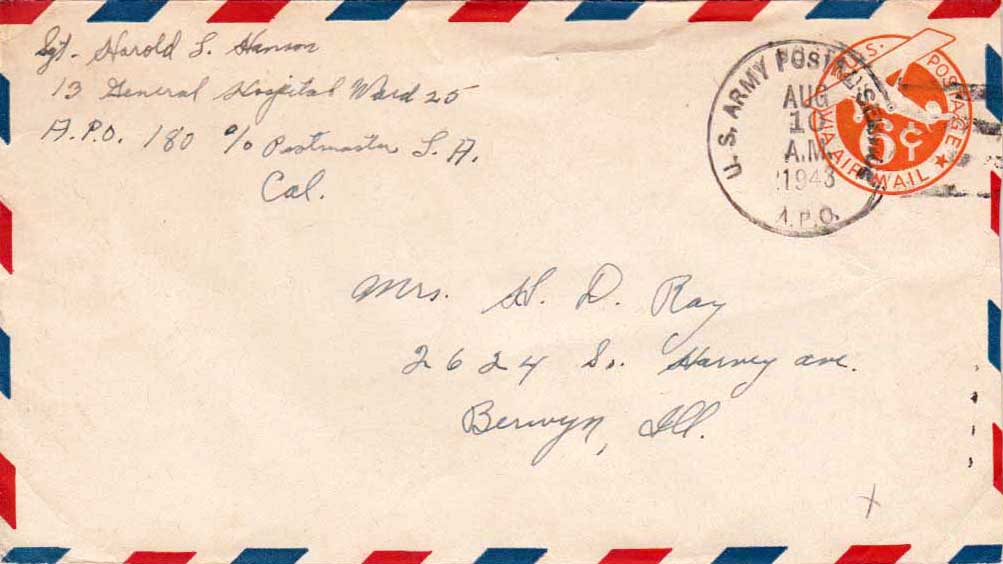 Sgt. Harold L. Hanson
13 General Hospital Ward 25
A.P.O. 180 c/o Postmaster L.A.
Cal.
U.S. ARMY POSTAL SERVICE
AUG
10
A.M.
1943
A.P.O.
U.S. POSTAGE
6¢
VIA AIR MAIL
Mrs. H. D. Ray
2624 So. Harvey ave.
Berwyn, Ill.